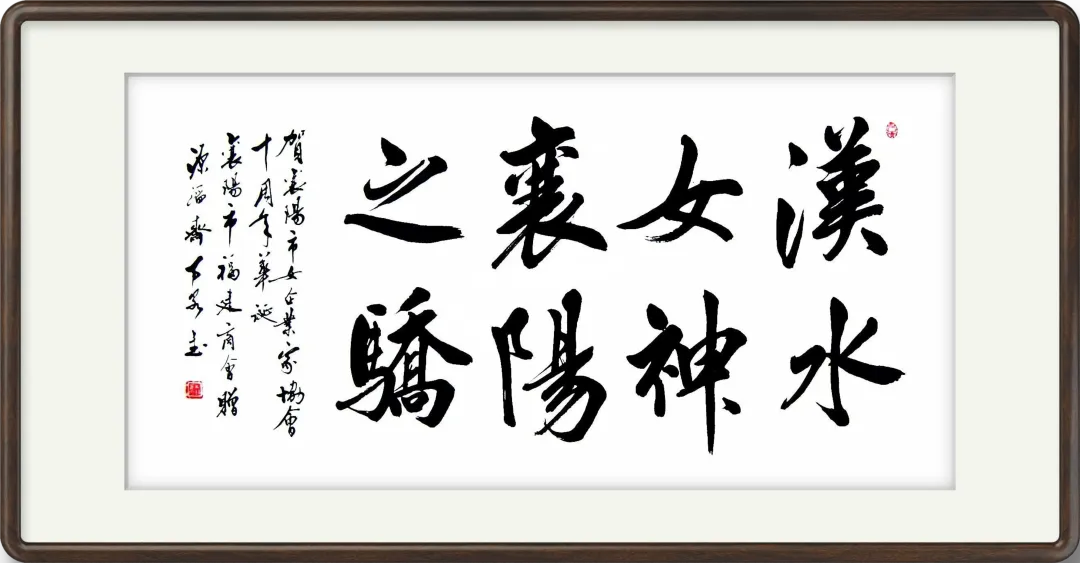 漢水
女神
襄陽
之驕
賀襄陽市女企業家協會
十周年華誕
襄陽市福建商會贈
源滔齋